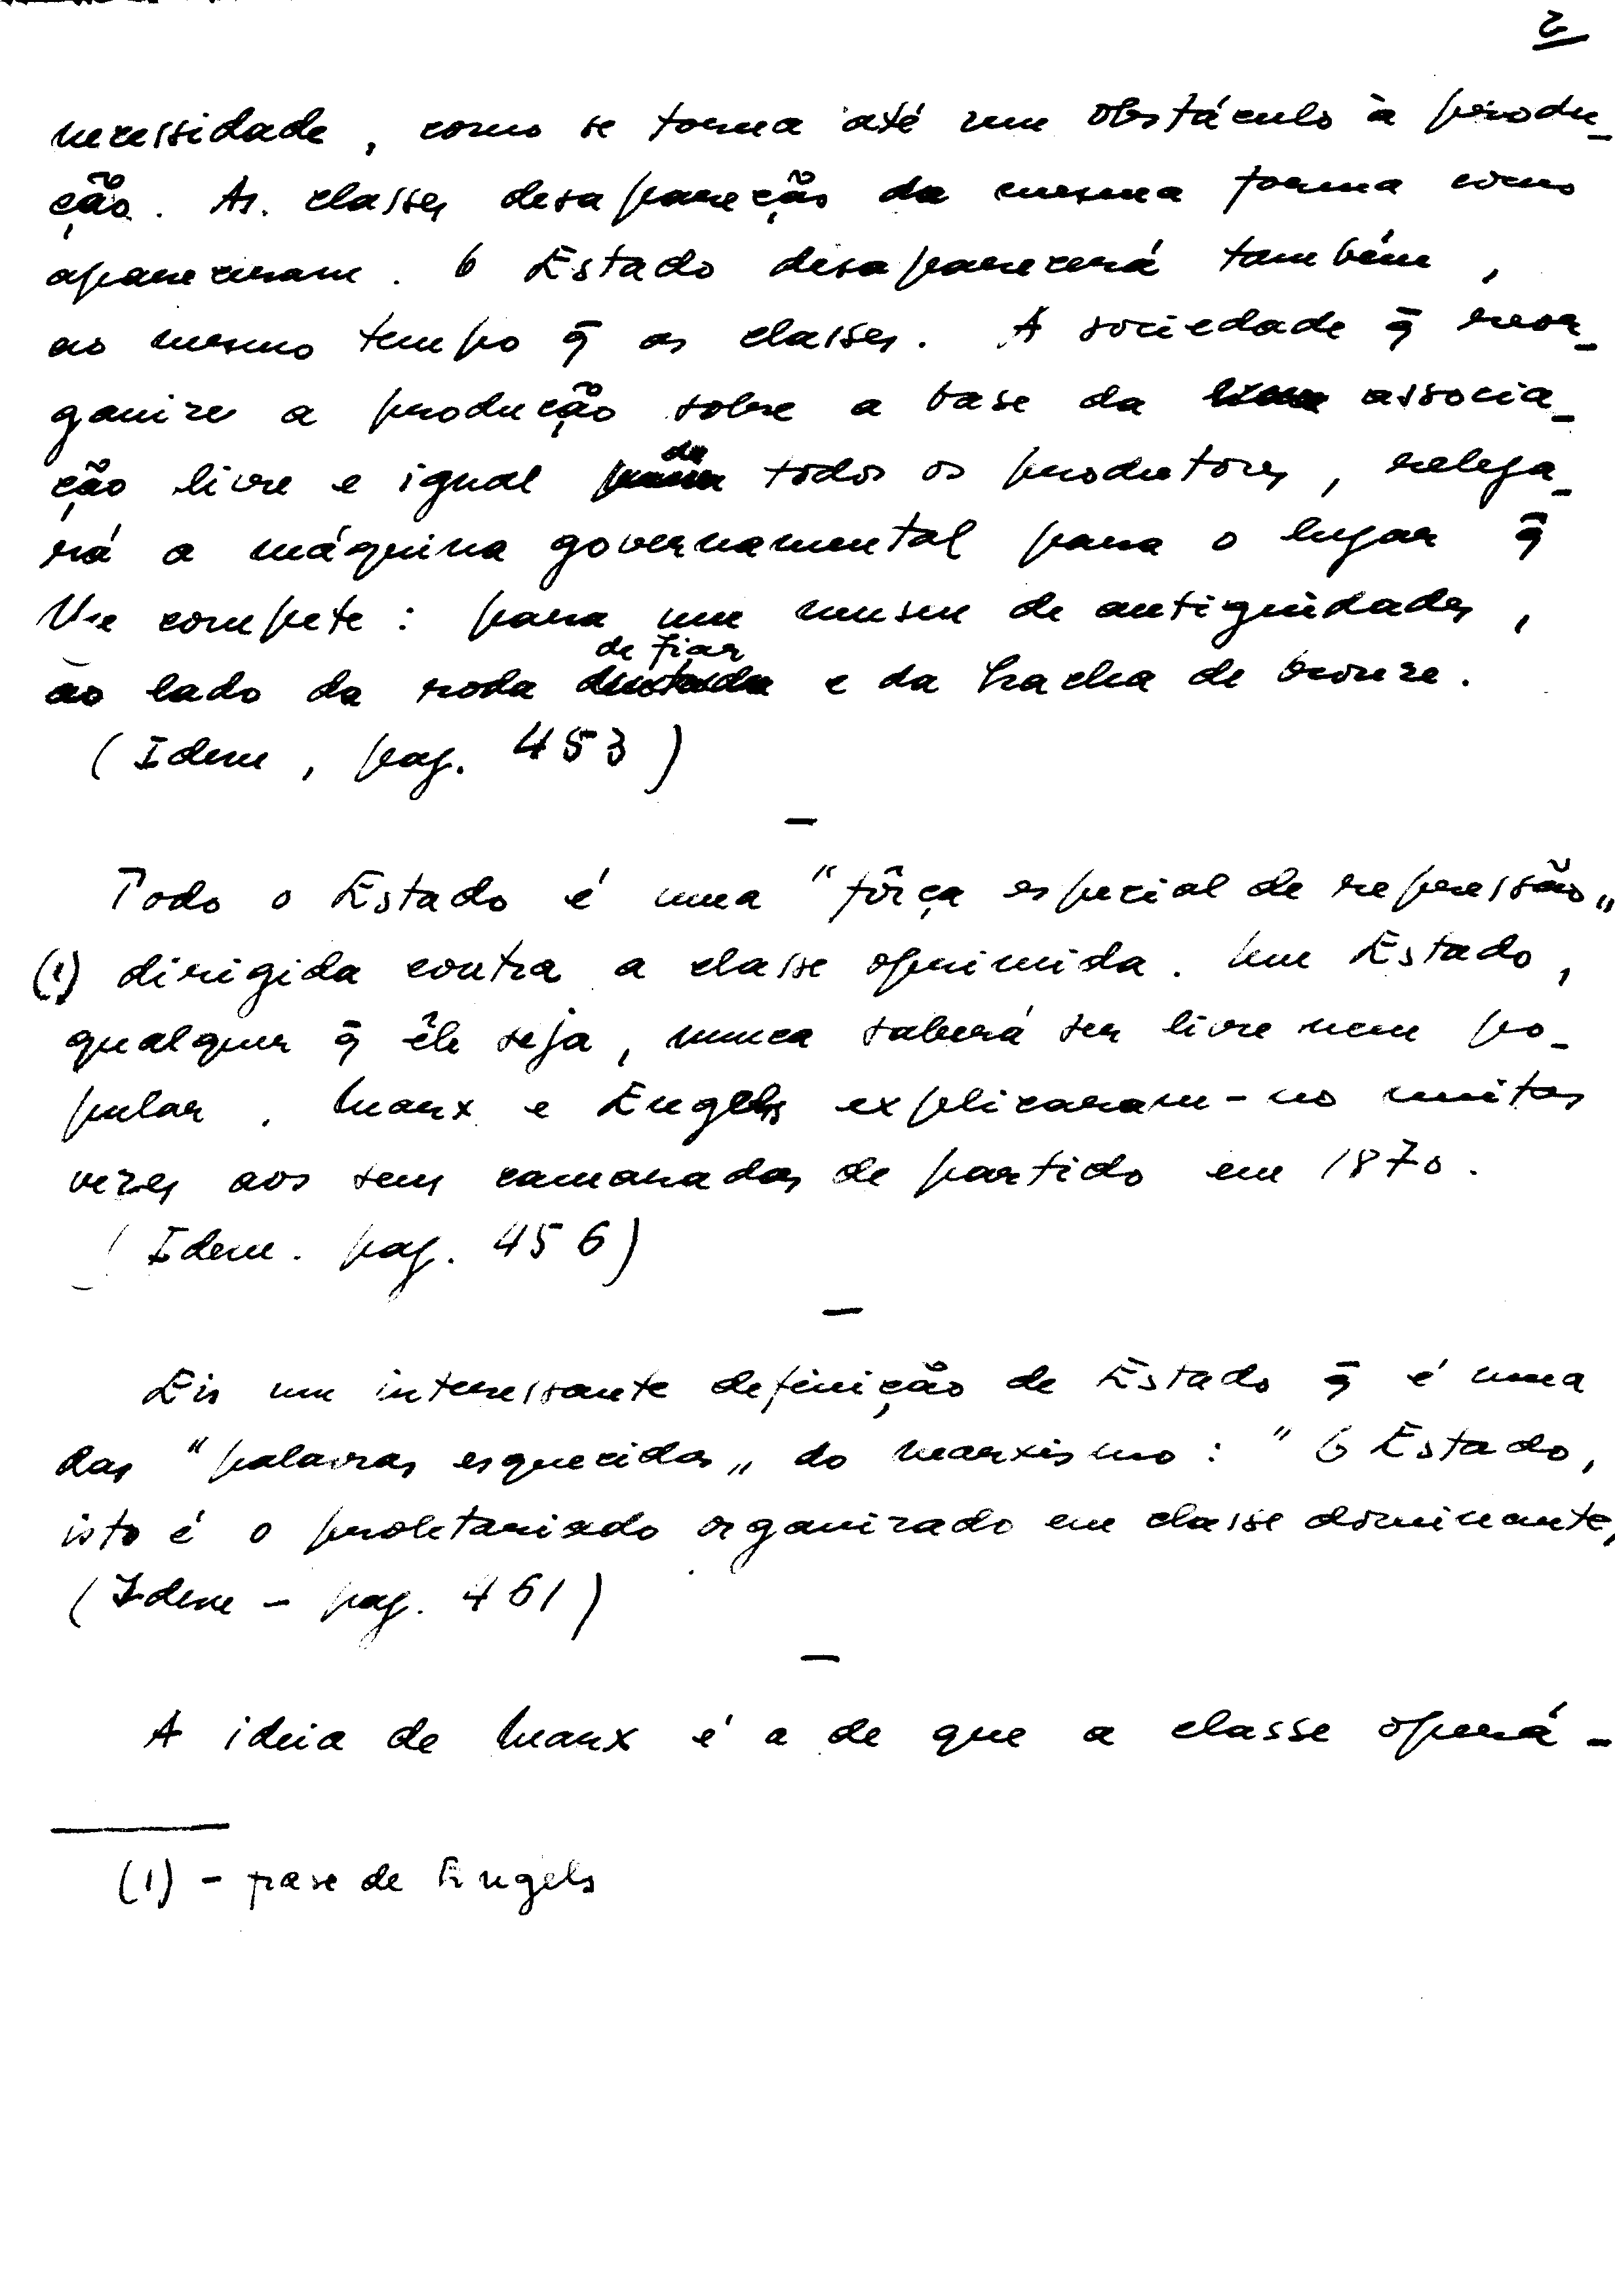 2
necessidade, como se torna até um obstáculo à produ-
ção. As classes desapareção da mesma forma como
apareceram. O Estado desaparecerá também,
ao mesmo tempo q̄ as classes. A sociedade q̄ reor-
ganize a produção sobre a base da associa-
ção livre e igual de todos os produtores, relega-
rá a máquina governamental para o lugar q̄
lhe compete: para um museu de antigüidades,
ao lado da roda de fiar e da hacha de bronze.
(Idem, pag. 453)
—
Todo o Estado é uma "fôrça especial de repressão„
(1) dirigida contra a classe oprimida. Um Estado,
qualquer q̄ êle seja, nunca saberá ser livre nem po-
pular. Marx e Engels explicaram-no muitas
vezes aos seus camaradas de partido em 1870.
(Idem. pag. 456)
—
Eis um interessante definição de Estado q̄ é uma
das "palavras esquecidas„ do marxismo: "O Estado,
isto é o proletariado organizado em classe dominante„
(Idem - pag. 461)
—
A ideia de Marx é a de que a classe operá-
(1) - frase de Engels